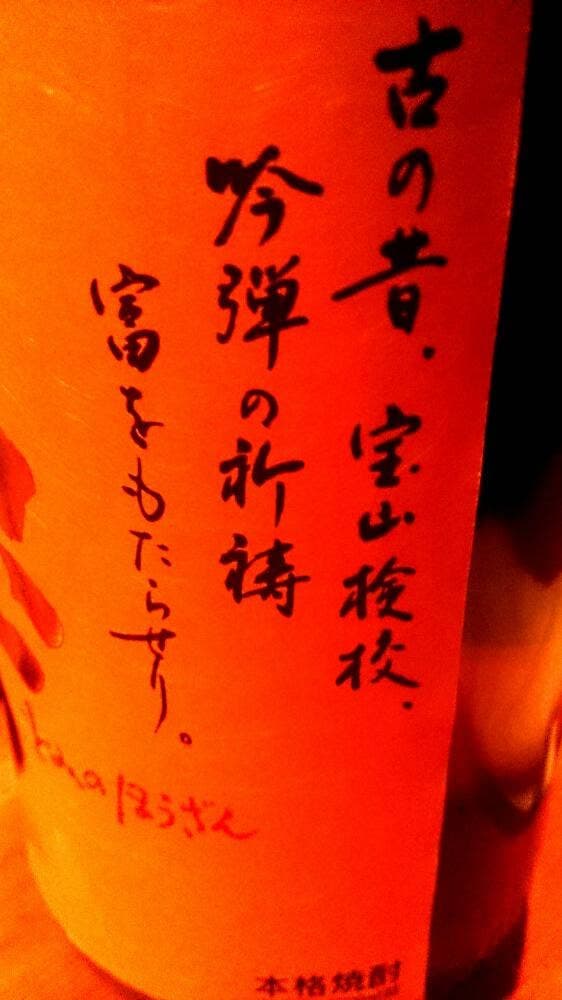 古の昔、宝山検校、
吟弾の祈祷
富をもたらせり。
とみのほうざん
本格焼酎